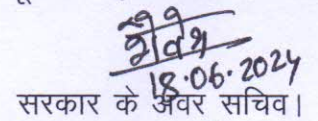 शैवेश
18.06.2024
सरकार के अवर सचिव।